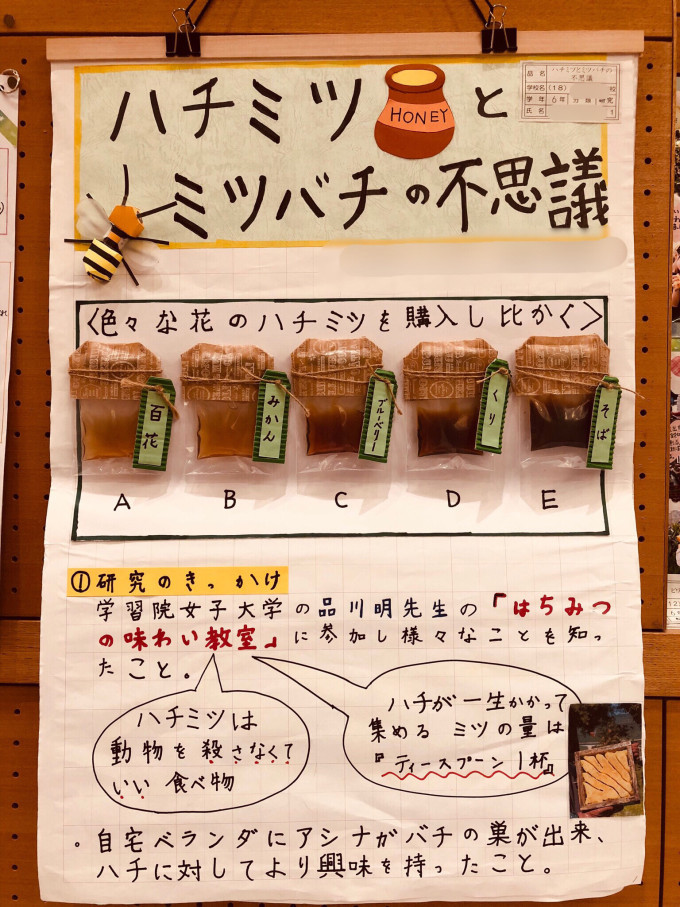 ハチミツ HONEY と
ミツバチの不思議
品名 ハチミツとミツバチの不思議
学校名 (18) 校
学年 6年 分類 研究
氏名 1
〈色々な花のハチミツを購入し比かく〉
百花 みかん ブルーベリー くり そば
A B C D E
①研究のきっかけ
学習院女子大学の品川明先生の『はちみつ
の味わい教室』に参加し様々なことを知っ
たこと。
ハチミツは
動物を殺さなくて
いい食べ物
ハチが一生かかって
集めるミツの量は
『ティースプーン1杯』
。自宅ベランダにアシナガバチの巣が出来、
ハチに対してより興味を持ったこと。